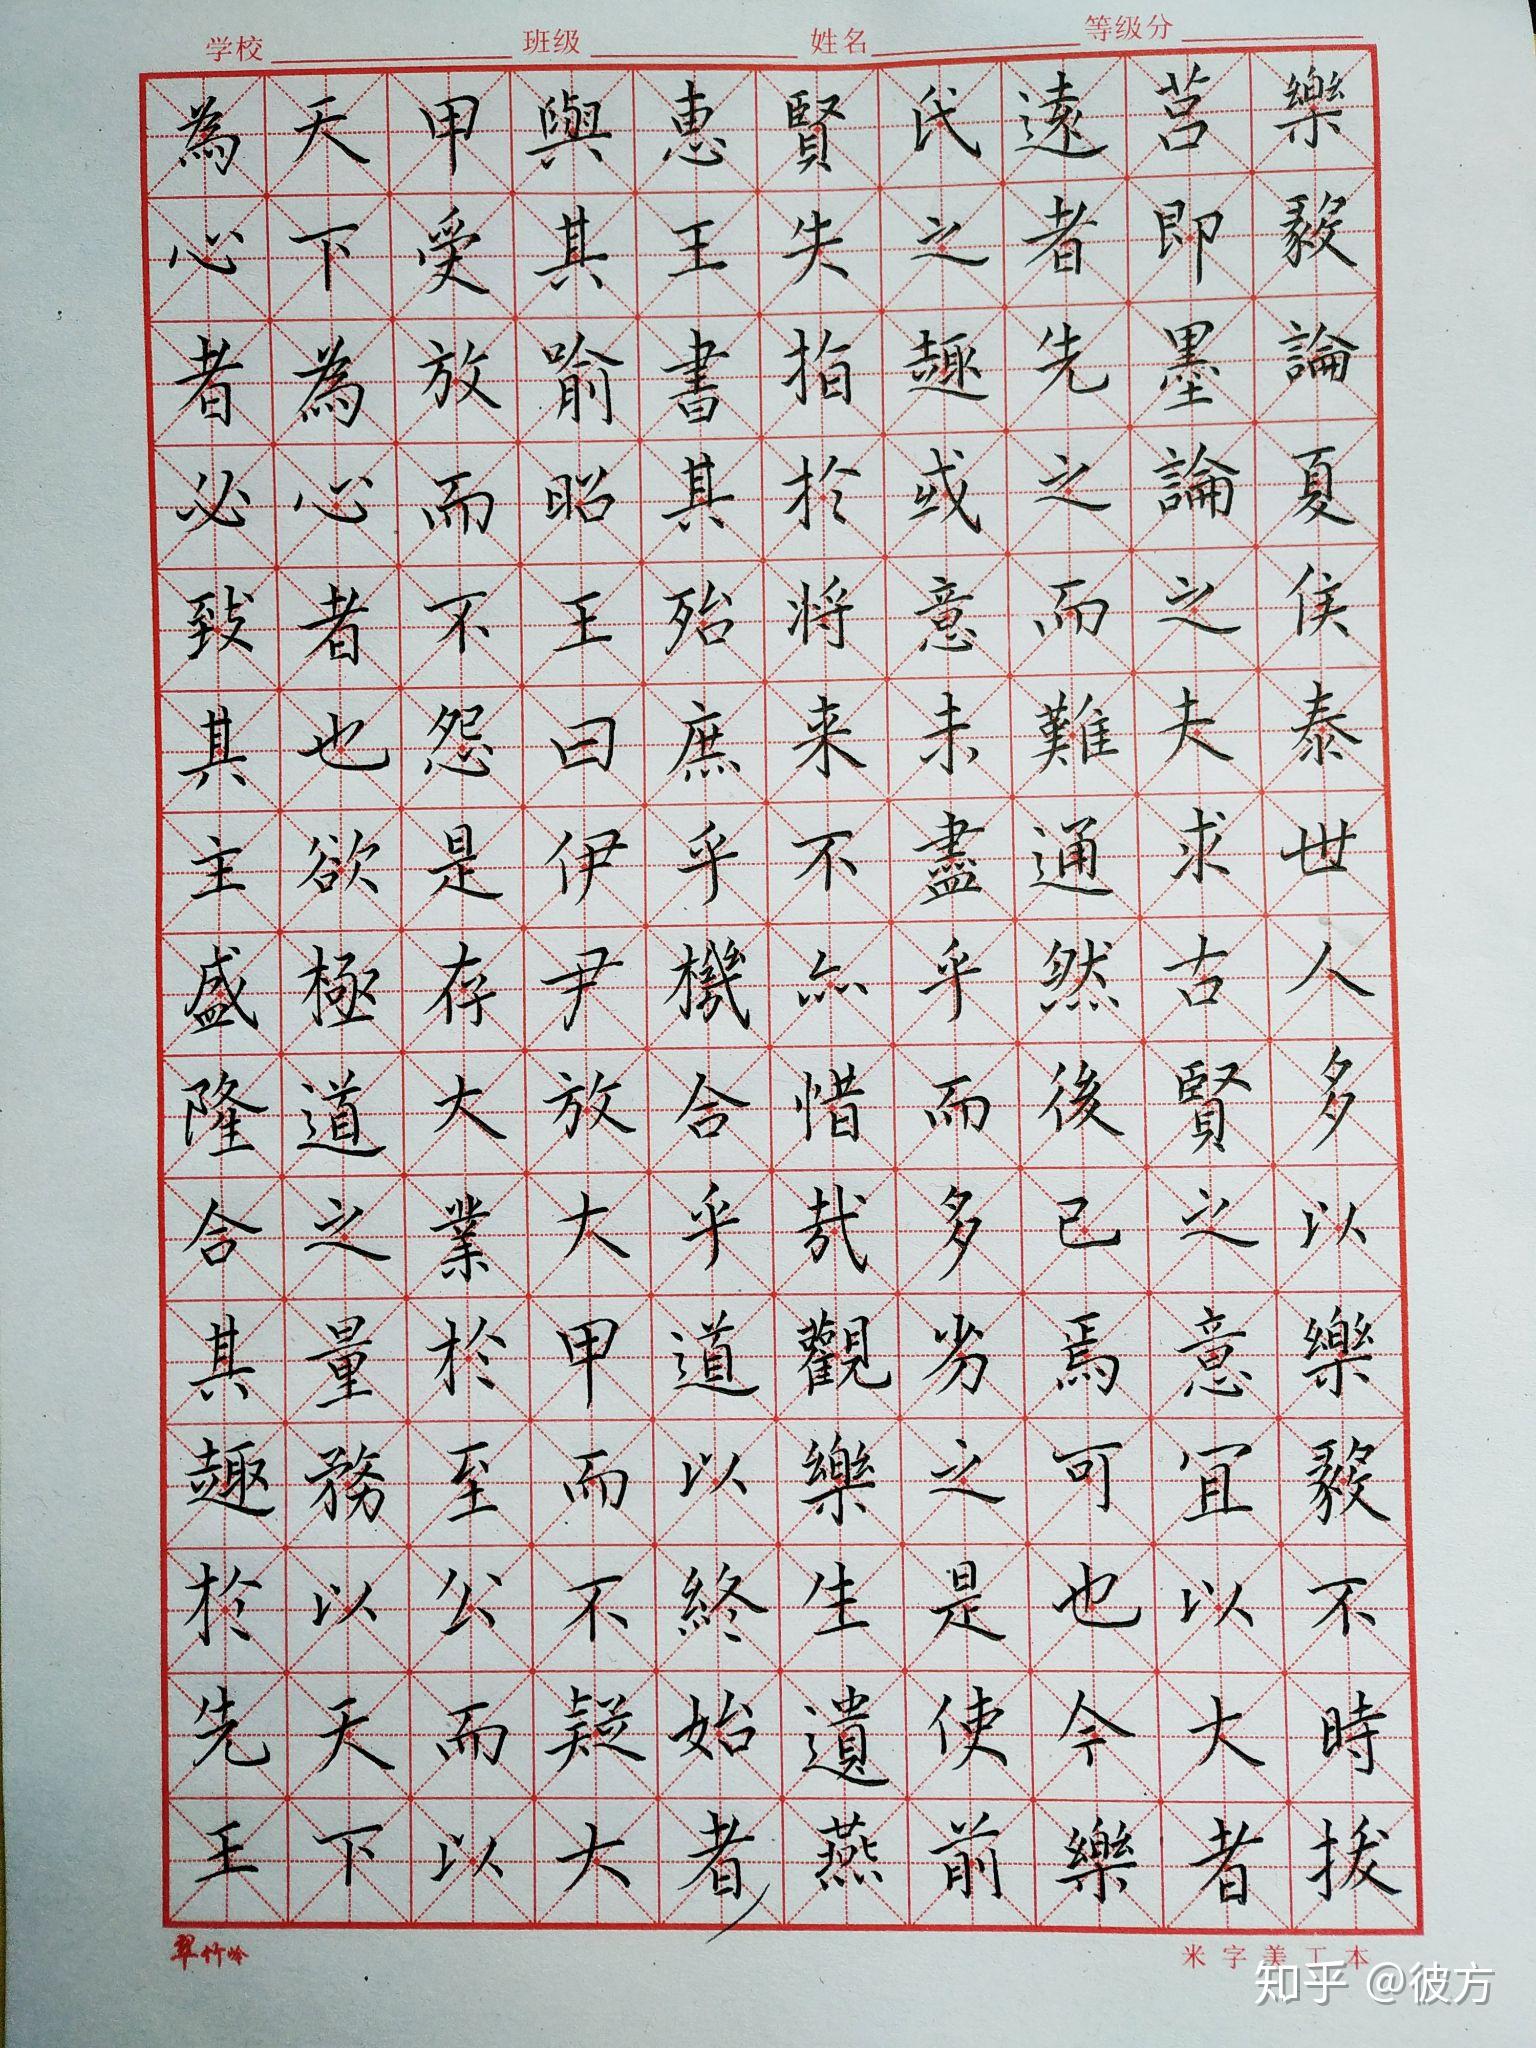 学校 班级 姓名 等级分
樂毅論夏侯泰世人多以樂毅不時拔
莒即墨論之夫求古賢之意宜以大者
遠者先之而難通然後已焉可也今樂
氏之趣或意未盡乎而多劣之是使前
賢失指於将来不亦惜哉觀樂生遺燕
惠王書其殆庶乎機合乎道以終始者
與其喻昭王曰伊尹放大甲而不疑大
甲受放而不怨是存大業於至公而以
天下為心者也欲極道之量務以天下
為心者必致其主盛隆合其趣於先王
翠竹岭 米字美工本
知乎 @彼方